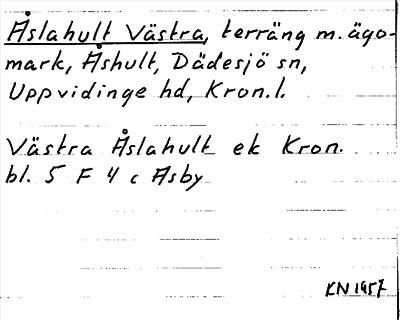 Åslahult Västra, terräng m. ägo-
mark, Åshult, Dädesjö sn,
Uppvidinge hd, Kron. l.
Västra Åslahult ek Kron.
bl. 5 F 4 c Asby
KN 1957